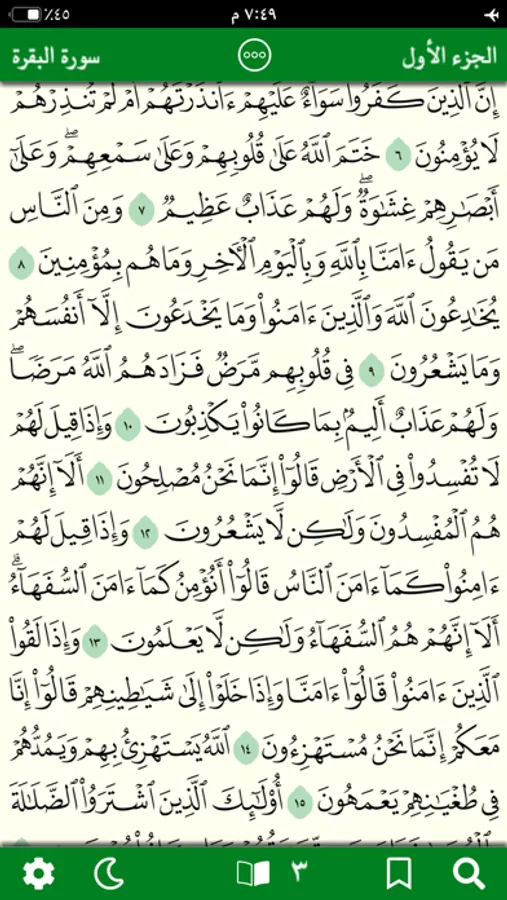 ٪٤٥ ٧:٤٩ م
الجزء الأول سورة البقرة
إِنَّ ٱلَّذِينَ كَفَرُوا۟ سَوَآءٌ عَلَيْهِمْ ءَأَنذَرْتَهُمْ أَمْ لَمْ تُنذِرْهُمْ
لَا يُؤْمِنُونَ ٦ خَتَمَ ٱللَّهُ عَلَىٰ قُلُوبِهِمْ وَعَلَىٰ سَمْعِهِمْ ۖ وَعَلَىٰٓ
أَبْصَـٰرِهِمْ غِشَـٰوَةٌ ۖ وَلَهُمْ عَذَابٌ عَظِيمٌ ٧ وَمِنَ ٱلنَّاسِ
مَن يَقُولُ ءَامَنَّا بِٱللَّهِ وَبِٱلْيَوْمِ ٱلْـَٔاخِرِ وَمَا هُم بِمُؤْمِنِينَ ٨
يُخَـٰدِعُونَ ٱللَّهَ وَٱلَّذِينَ ءَامَنُوا۟ وَمَا يَخْدَعُونَ إِلَّآ أَنفُسَهُمْ
وَمَا يَشْعُرُونَ ٩ فِى قُلُوبِهِم مَّرَضٌ فَزَادَهُمُ ٱللَّهُ مَرَضًا ۖ
وَلَهُمْ عَذَابٌ أَلِيمٌۢ بِمَا كَانُوا۟ يَكْذِبُونَ ١٠ وَإِذَا قِيلَ لَهُمْ
لَا تُفْسِدُوا۟ فِى ٱلْأَرْضِ قَالُوٓا۟ إِنَّمَا نَحْنُ مُصْلِحُونَ ١١ أَلَآ إِنَّهُمْ
هُمُ ٱلْمُفْسِدُونَ وَلَـٰكِن لَّا يَشْعُرُونَ ١٢ وَإِذَا قِيلَ لَهُمْ
ءَامِنُوا۟ كَمَآ ءَامَنَ ٱلنَّاسُ قَالُوٓا۟ أَنُؤْمِنُ كَمَآ ءَامَنَ ٱلسُّفَهَآءُ ۗ
أَلَآ إِنَّهُمْ هُمُ ٱلسُّفَهَآءُ وَلَـٰكِن لَّا يَعْلَمُونَ ١٣ وَإِذَا لَقُوا۟
ٱلَّذِينَ ءَامَنُوا۟ قَالُوٓا۟ ءَامَنَّا وَإِذَا خَلَوْا۟ إِلَىٰ شَيَـٰطِينِهِمْ قَالُوٓا۟ إِنَّا
مَعَكُمْ إِنَّمَا نَحْنُ مُسْتَهْزِءُونَ ١٤ ٱللَّهُ يَسْتَهْزِئُ بِهِمْ وَيَمُدُّهُمْ
فِى طُغْيَـٰنِهِمْ يَعْمَهُونَ ١٥ أُو۟لَـٰٓئِكَ ٱلَّذِينَ ٱشْتَرَوُا۟ ٱلضَّلَـٰلَةَ
٣